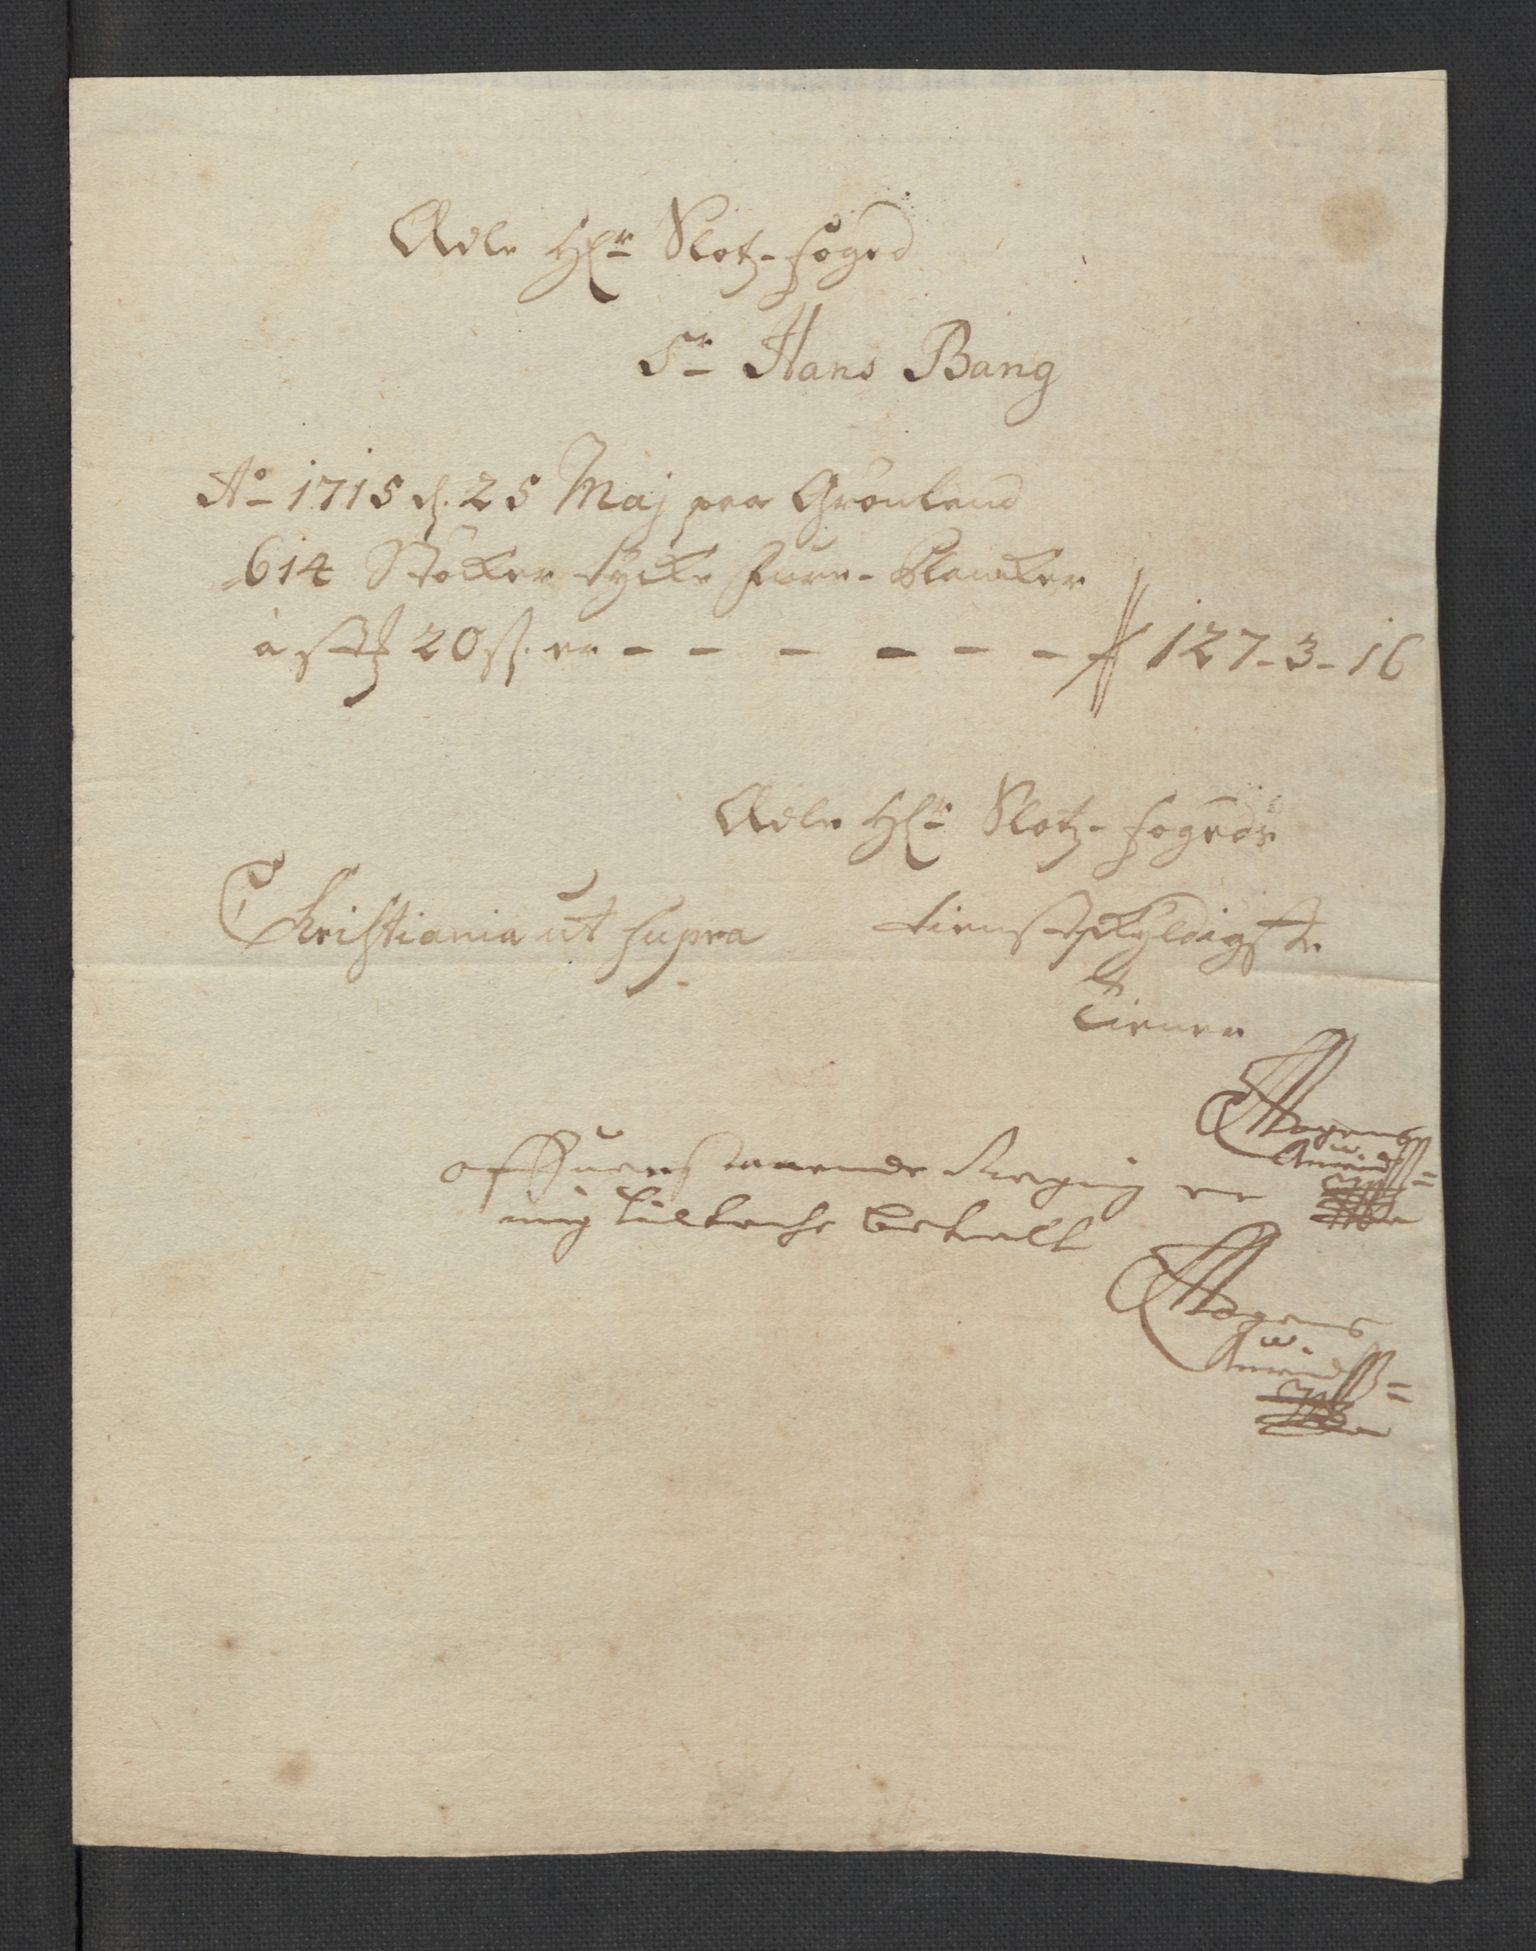 Ædle Hr Slotz-foged
Sr Hans Bang
Ao 1715 d. 25 Maj paa Grönland
614 Stöcker tycke Furu-Plancker
à st 20 s. er - - - - - - 127-3-16
Ædle Hr Slotz-fogeds
Christiania ut supra tienstskyldigste
Tiener
Mogens
offuenstaaende Reigning er
mig betalt
Mogens